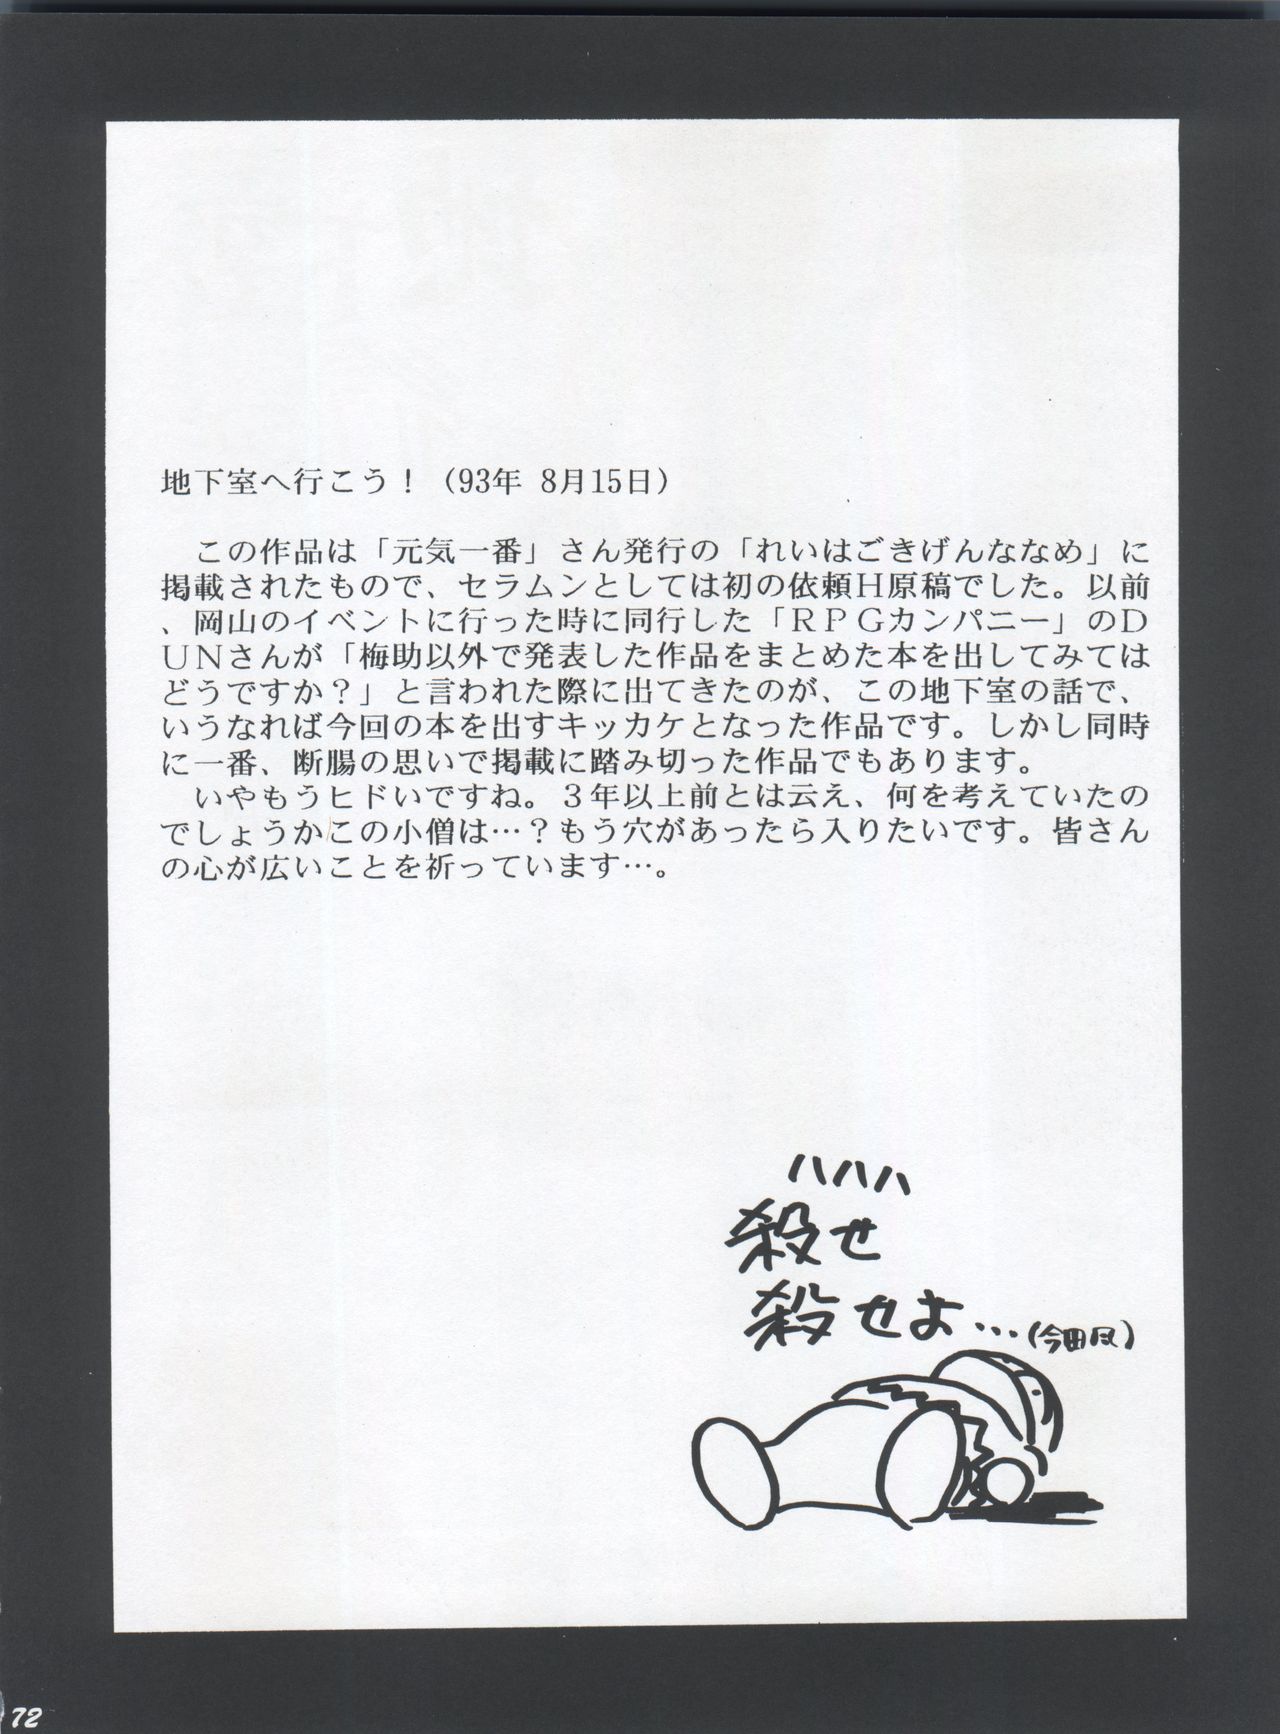 地下室へ行こう！（93年 8月15日）
　この作品は「元気一番」さん発行の「れいはごきげんななめ」に
掲載されたもので、セラムンとしては初の依頼Ｈ原稿でした。以前
、岡山のイベントに行った時に同行した「ＲＰＧカンパニー」のＤ
ＵＮさんが「梅助以外で発表した作品をまとめた本を出してみては
どうですか？」と言われた際に出てきたのが、この地下室の話で、
いうなれば今回の本を出すキッカケとなった作品です。しかし同時
に一番、断腸の思いで掲載に踏み切った作品でもあります。
　いやもうヒドいですね。３年以上前とは云え、何を考えていたの
でしょうかこの小僧は…？もう穴があったら入りたいです。皆さん
の心が広いことを祈っています…。
ハハハ
殺せ
殺せよ…(今田風)
72